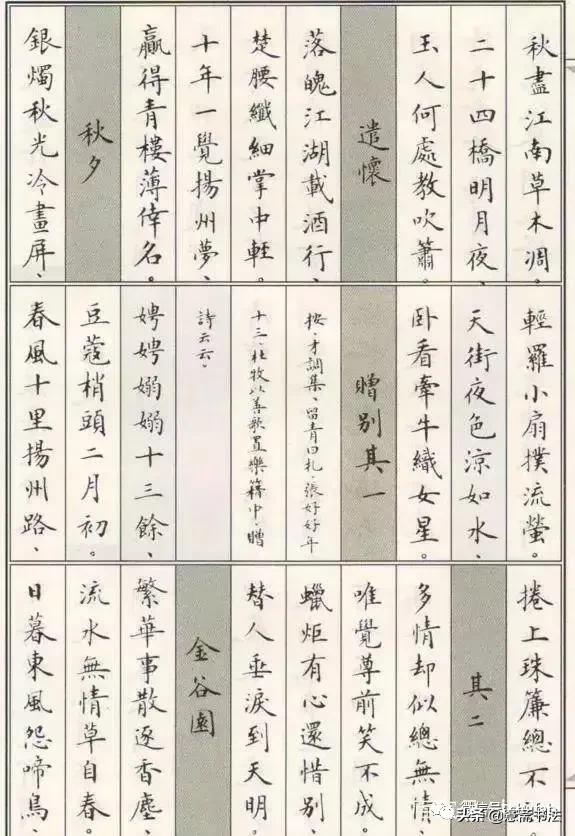 秋盡江南草木凋。
二十四橋明月夜、
玉人何處教吹簫。
遣懷
落魄江湖載酒行、
楚腰纖細掌中輕。
十年一覺揚州夢、
贏得青樓薄倖名。
秋夕
銀燭秋光冷畫屏、
輕羅小扇撲流螢。
天街夜色涼如水、
卧看牽牛織女星。
贈別其一
按、才調集、留青日札、張好好年
十三、杜牧以善歌置樂籍中、贈
詩云云、
娉娉嫋嫋十三餘、
豆蔻梢頭二月初。
春風十里揚州路、
捲上珠簾總不
其二
多情却似總無情
唯覺尊前笑不成。
蠟炬有心還惜別、
替人垂淚到天明。
金谷園
繁華事散逐香塵、
流水無情草自春。
日暮東風怨啼鳥、
头条 @意斋书法